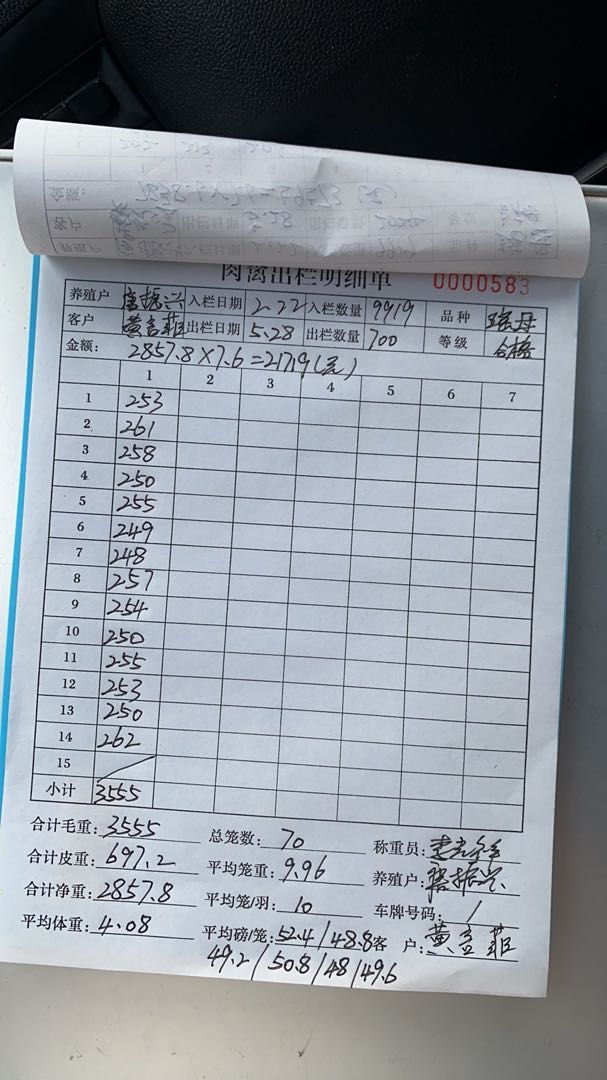 肉禽出栏明细单 0000583
养殖户 振兴 入栏日期 2.22 入栏数量 9919 品种
客户 黄 菲 出栏日期 5.28 出栏数量 700 等级 合格
金额: 2857.8×7.6=21719(元)
1 2 3 4 5 6 7
1 253
2 261
3 258
4 250
5 255
6 249
7 248
8 257
9 254
10 250
11 255
12 253
13 250
14 262
15
小计 3555
合计毛重: 3555 总笼数: 70 称重员:
合计皮重: 697.2 平均笼重: 9.96 养殖户: 振兴
合计净重: 2857.8 平均笼/羽: 10 车牌号码: /
平均体重: 4.08 平均磅/笼: 52.4/48.8 客 户: 黄 菲
49.2/50.8/48/49.6